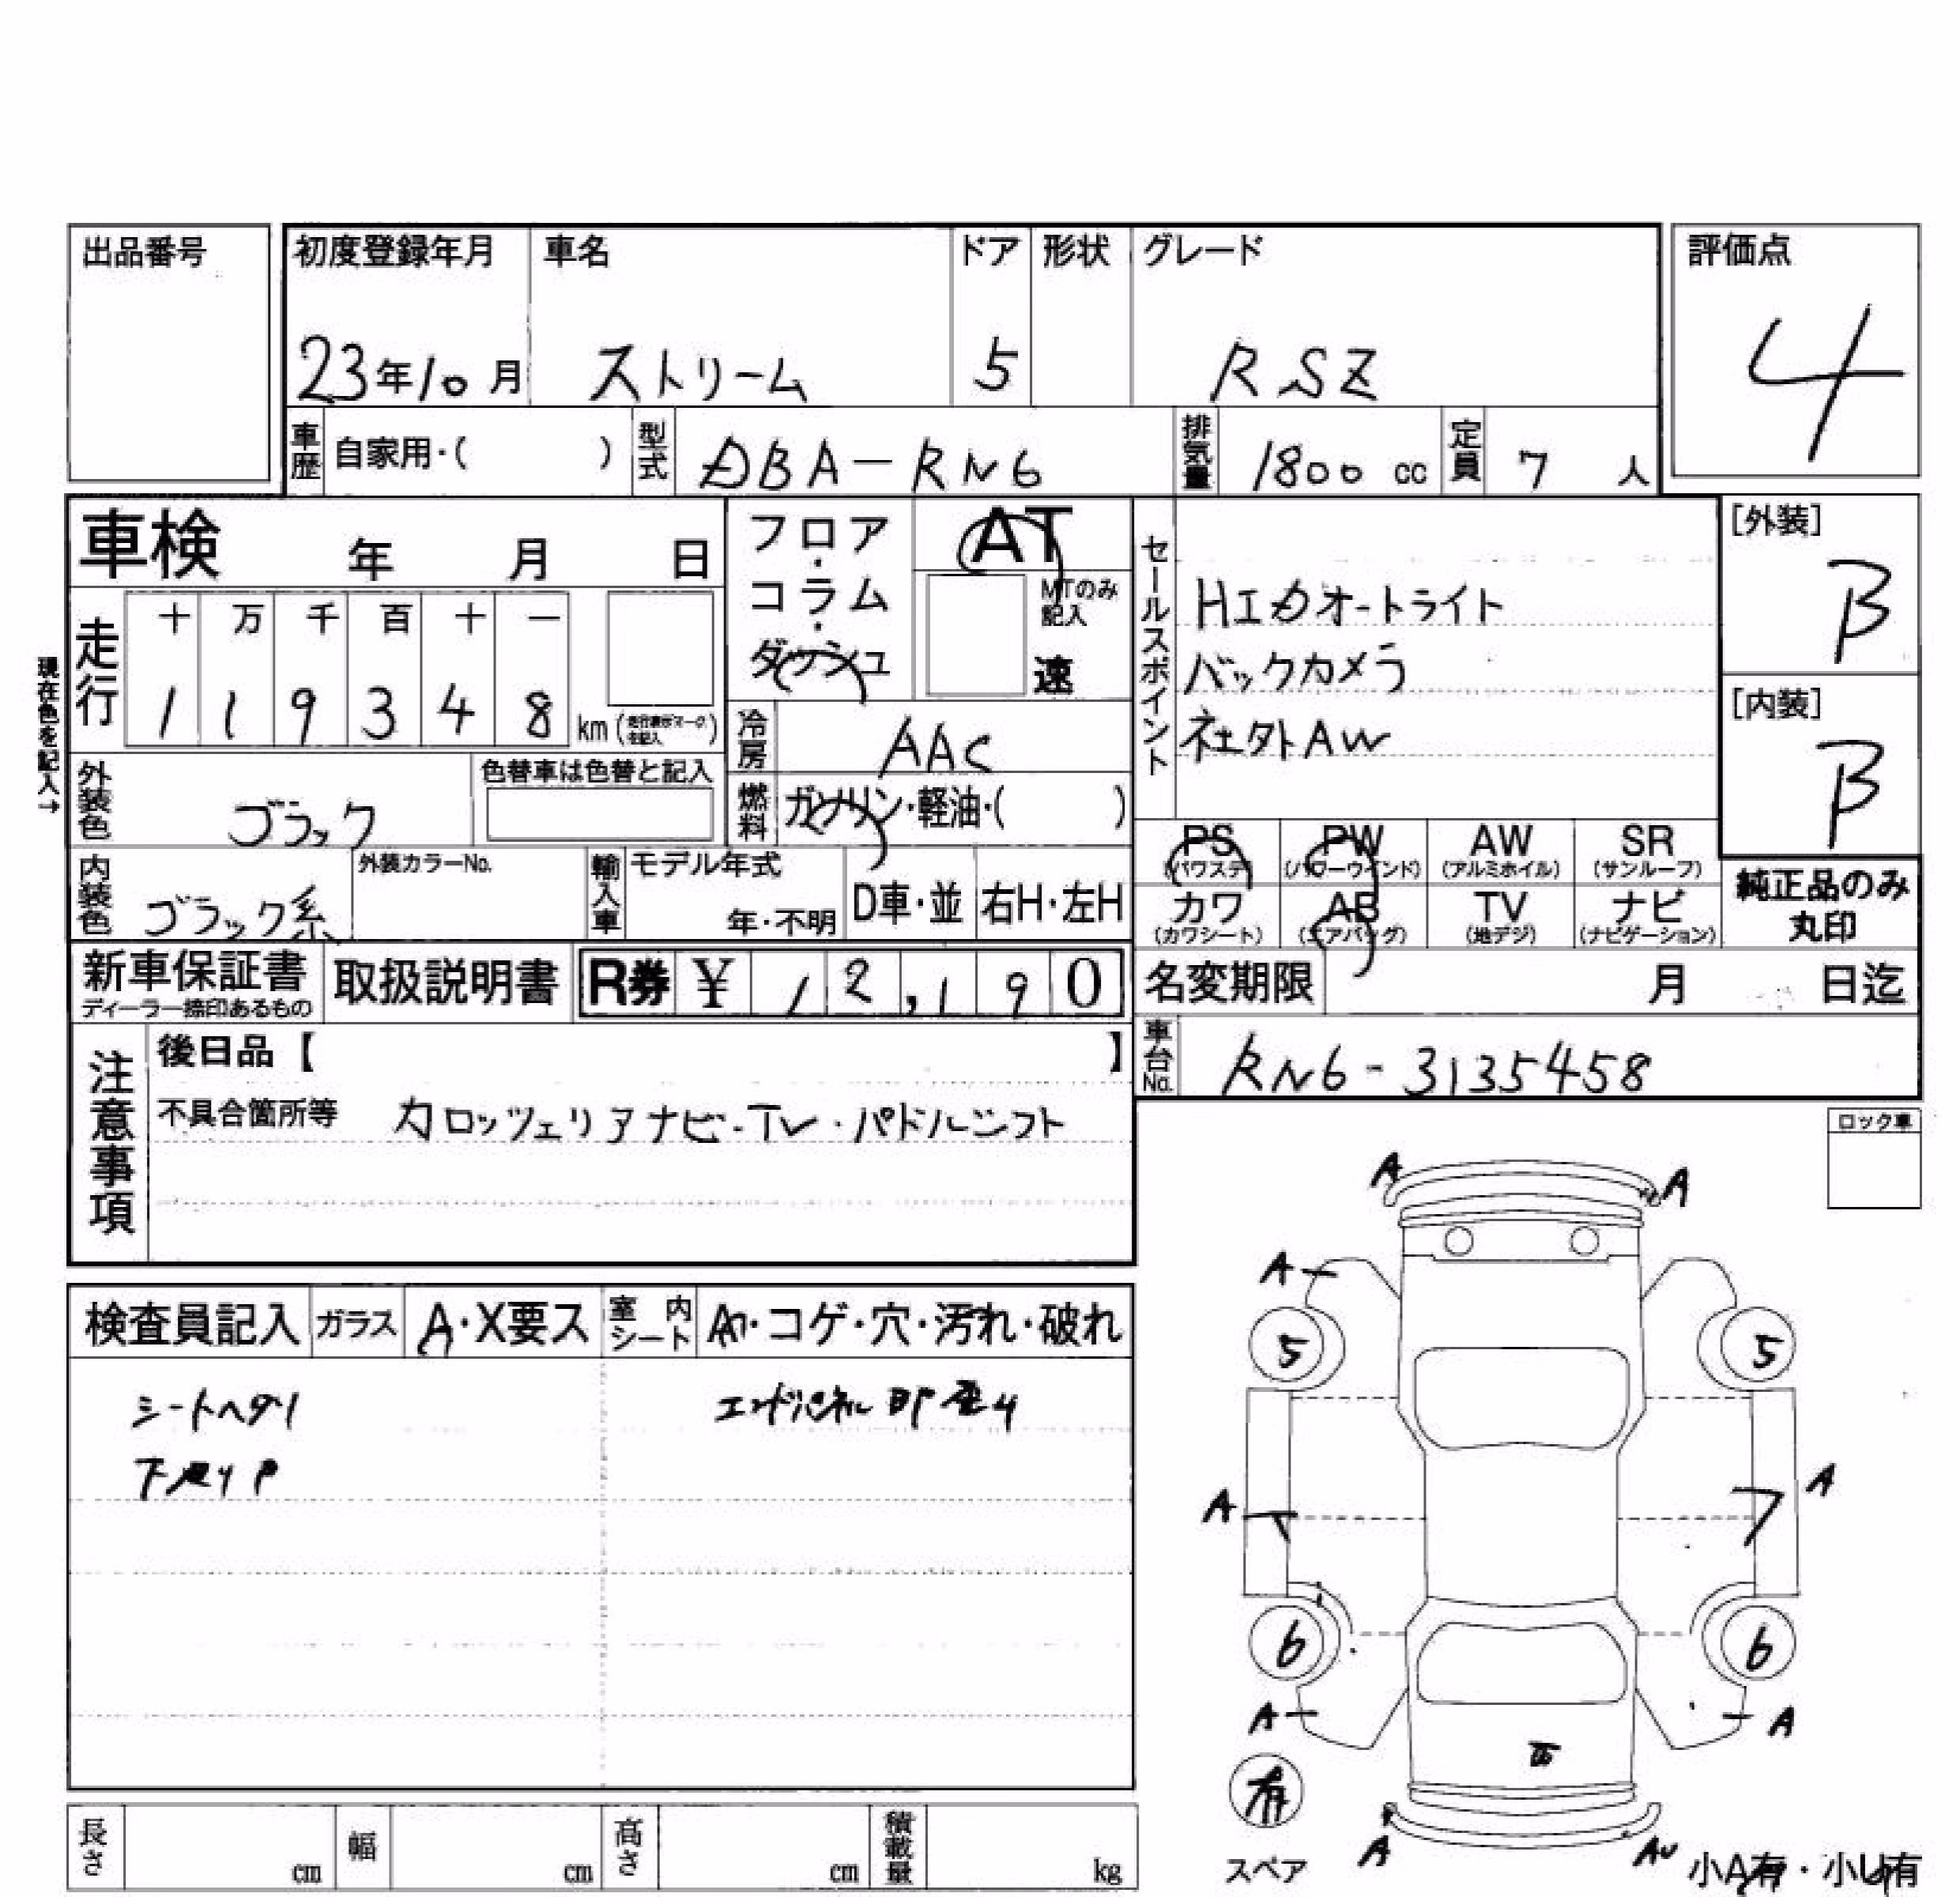 出品番号
初度登録年月 車名 ドア 形状 グレード 評価点
23年10月 ストリーム 5 RSZ 4
車歴 自家用・( ) 型式 DBA-RN6 排気量 1800cc 定員 7人
車検 年 月 日
フロア・コラム・ダッシュ
AT
MTのみ記入
速
セールスポイント
HIDオートライト
バックカメラ
社外AW
[外装]
B
[内装]
B
現在色を記入→
走行 十 万 千 百 十 一
1 1 9 3 4 8 km
冷房 AAC
外装色 ブラック 色替車は色替と記入
燃料 ガソリン・軽油・( )
内装色 ブラック系 外装カラーNo. 輸入車 モデル年式 年・不明 D車・並 右H・左H
PS (パワステ) PW (パワーウインド) AW (アルミホイル) SR (サンルーフ)
カワ (カワシート) AB (エアバッグ) TV (地デジ) ナビ (ナビゲーション)
純正品のみ丸印
新車保証書 ディーラー捺印あるもの 取扱説明書 R券 ¥12,190
名変期限 月 日迄
車台No. RN6-3135458
注意事項
後日品【 】
不具合箇所等 カロッツェリアナビ・TV・パドルシフト
ロック車
検査員記入 ガラス A・X要ス 室内シート ・コゲ・穴・汚れ・破れ
シートヘタリ
エンドパネル
A A
A
5 5
A A
6 6
A A
有
スペア
A AU
小A有・小U有
長さ cm 幅 cm 高さ cm 積載量 kg